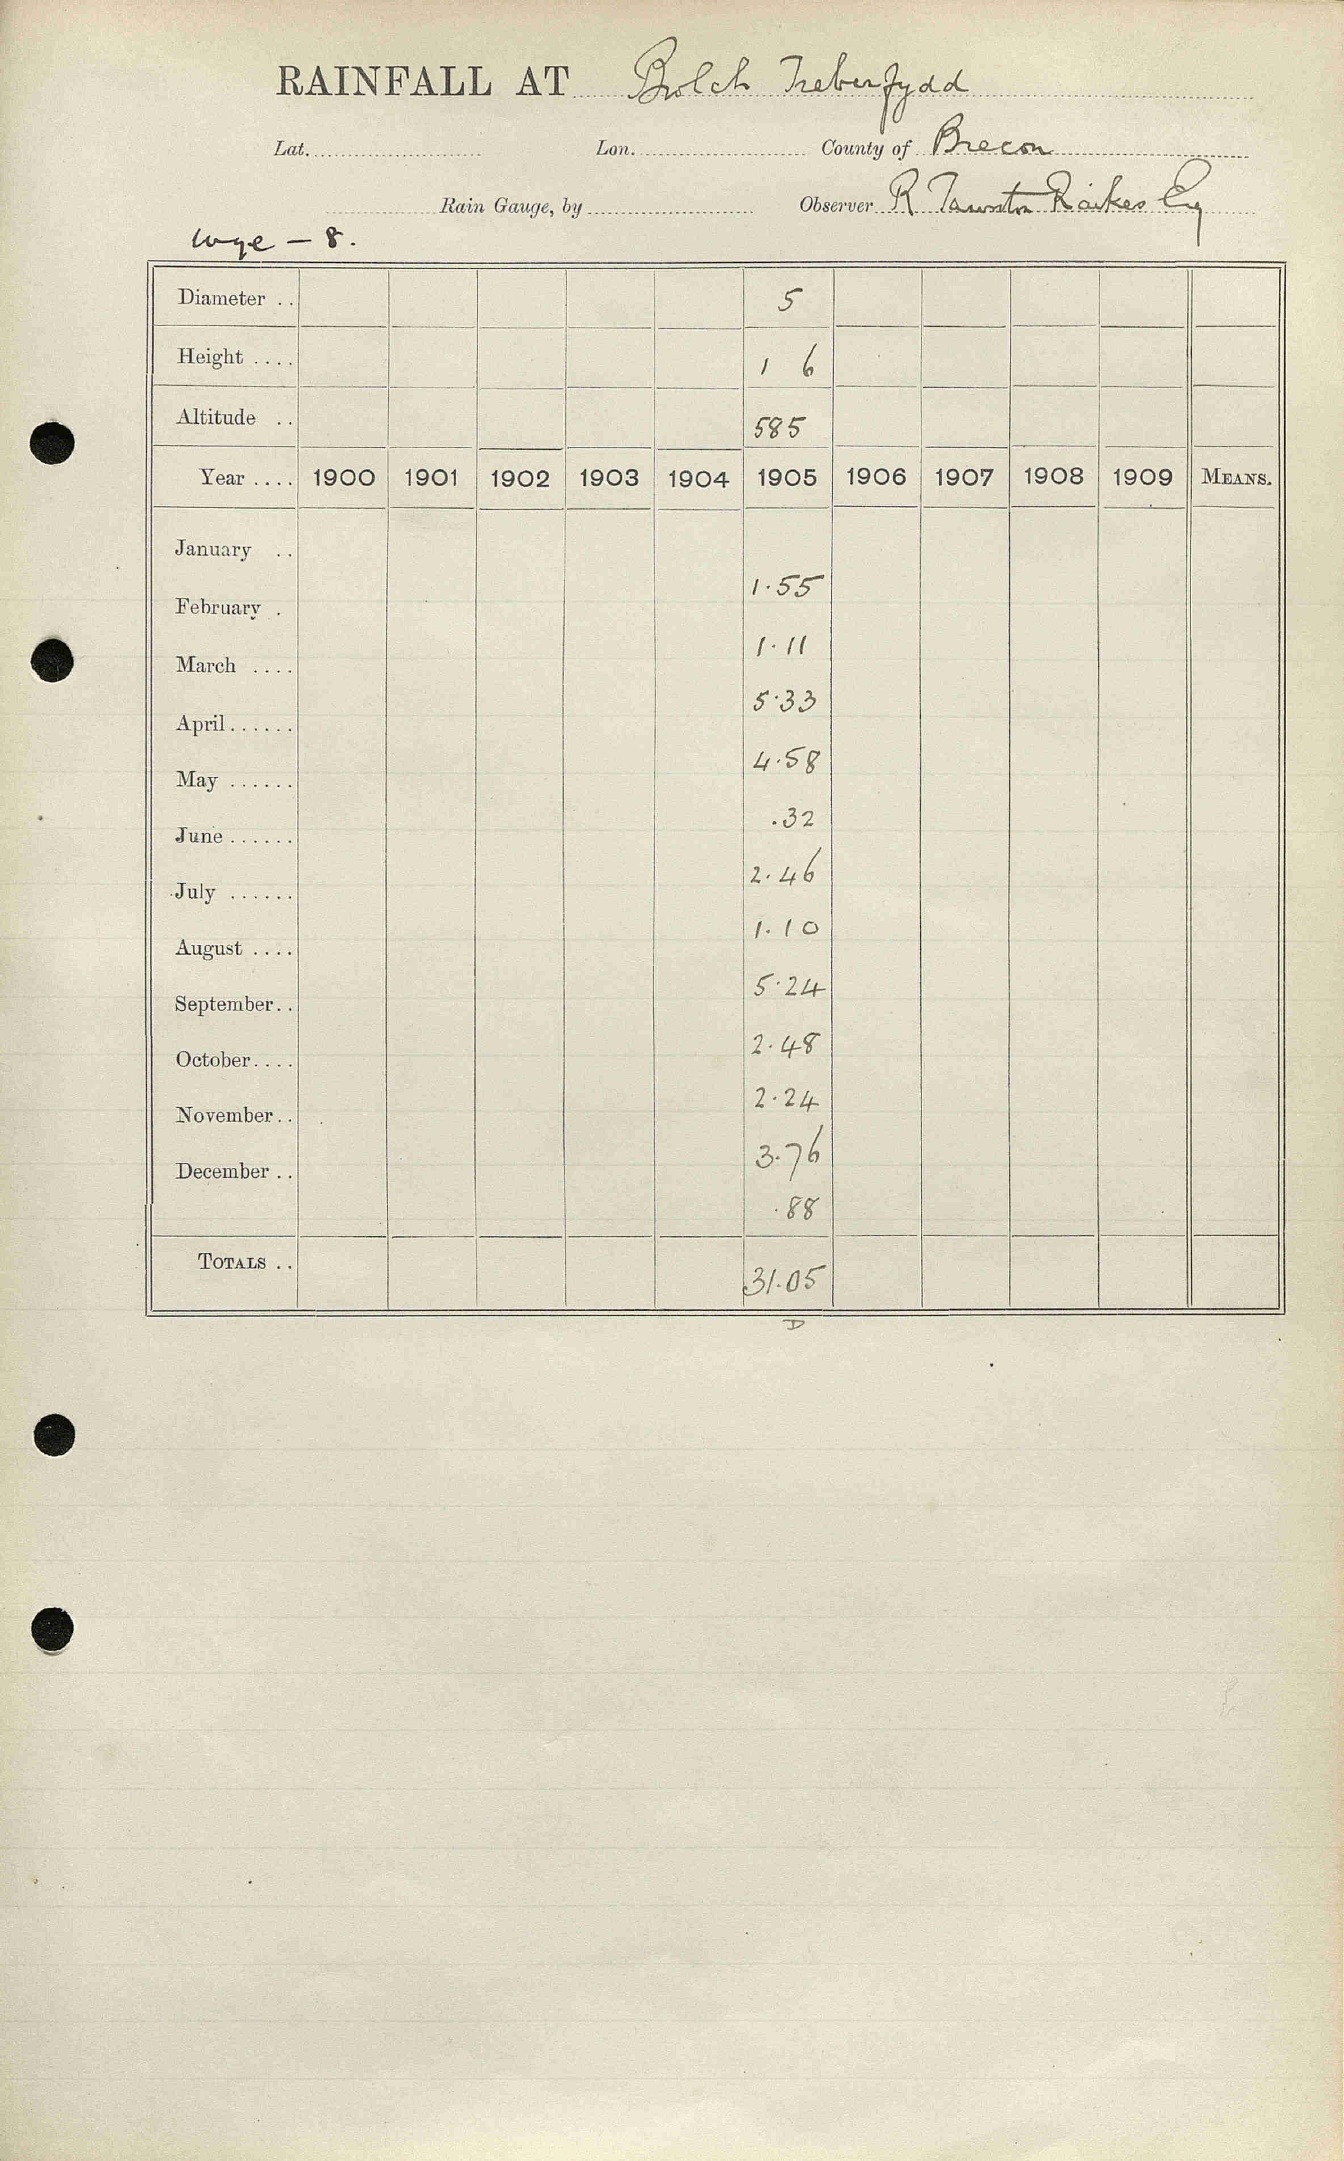 RAINFALL AT Bwlch Treberfydd
Lat. Lon. County of Brecon
Rain Gauge, by Observer R Tawnton Raikes Esq
Wye - 8.
Diameter .. 5
Height .... 1 6
Altitude .. 585
Year .... 1900 1901 1902 1903 1904 1905 1906 1907 1908 1909 MEANS.
January ..
1.55
February .
1.11
March ....
5.33
April......
4.58
May ......
.32
June ......
2.46
July ......
1.10
August ....
5.24
September..
2.48
October....
2.24
November..
3.76
December ..
.88
TOTALS .. 31.05
D